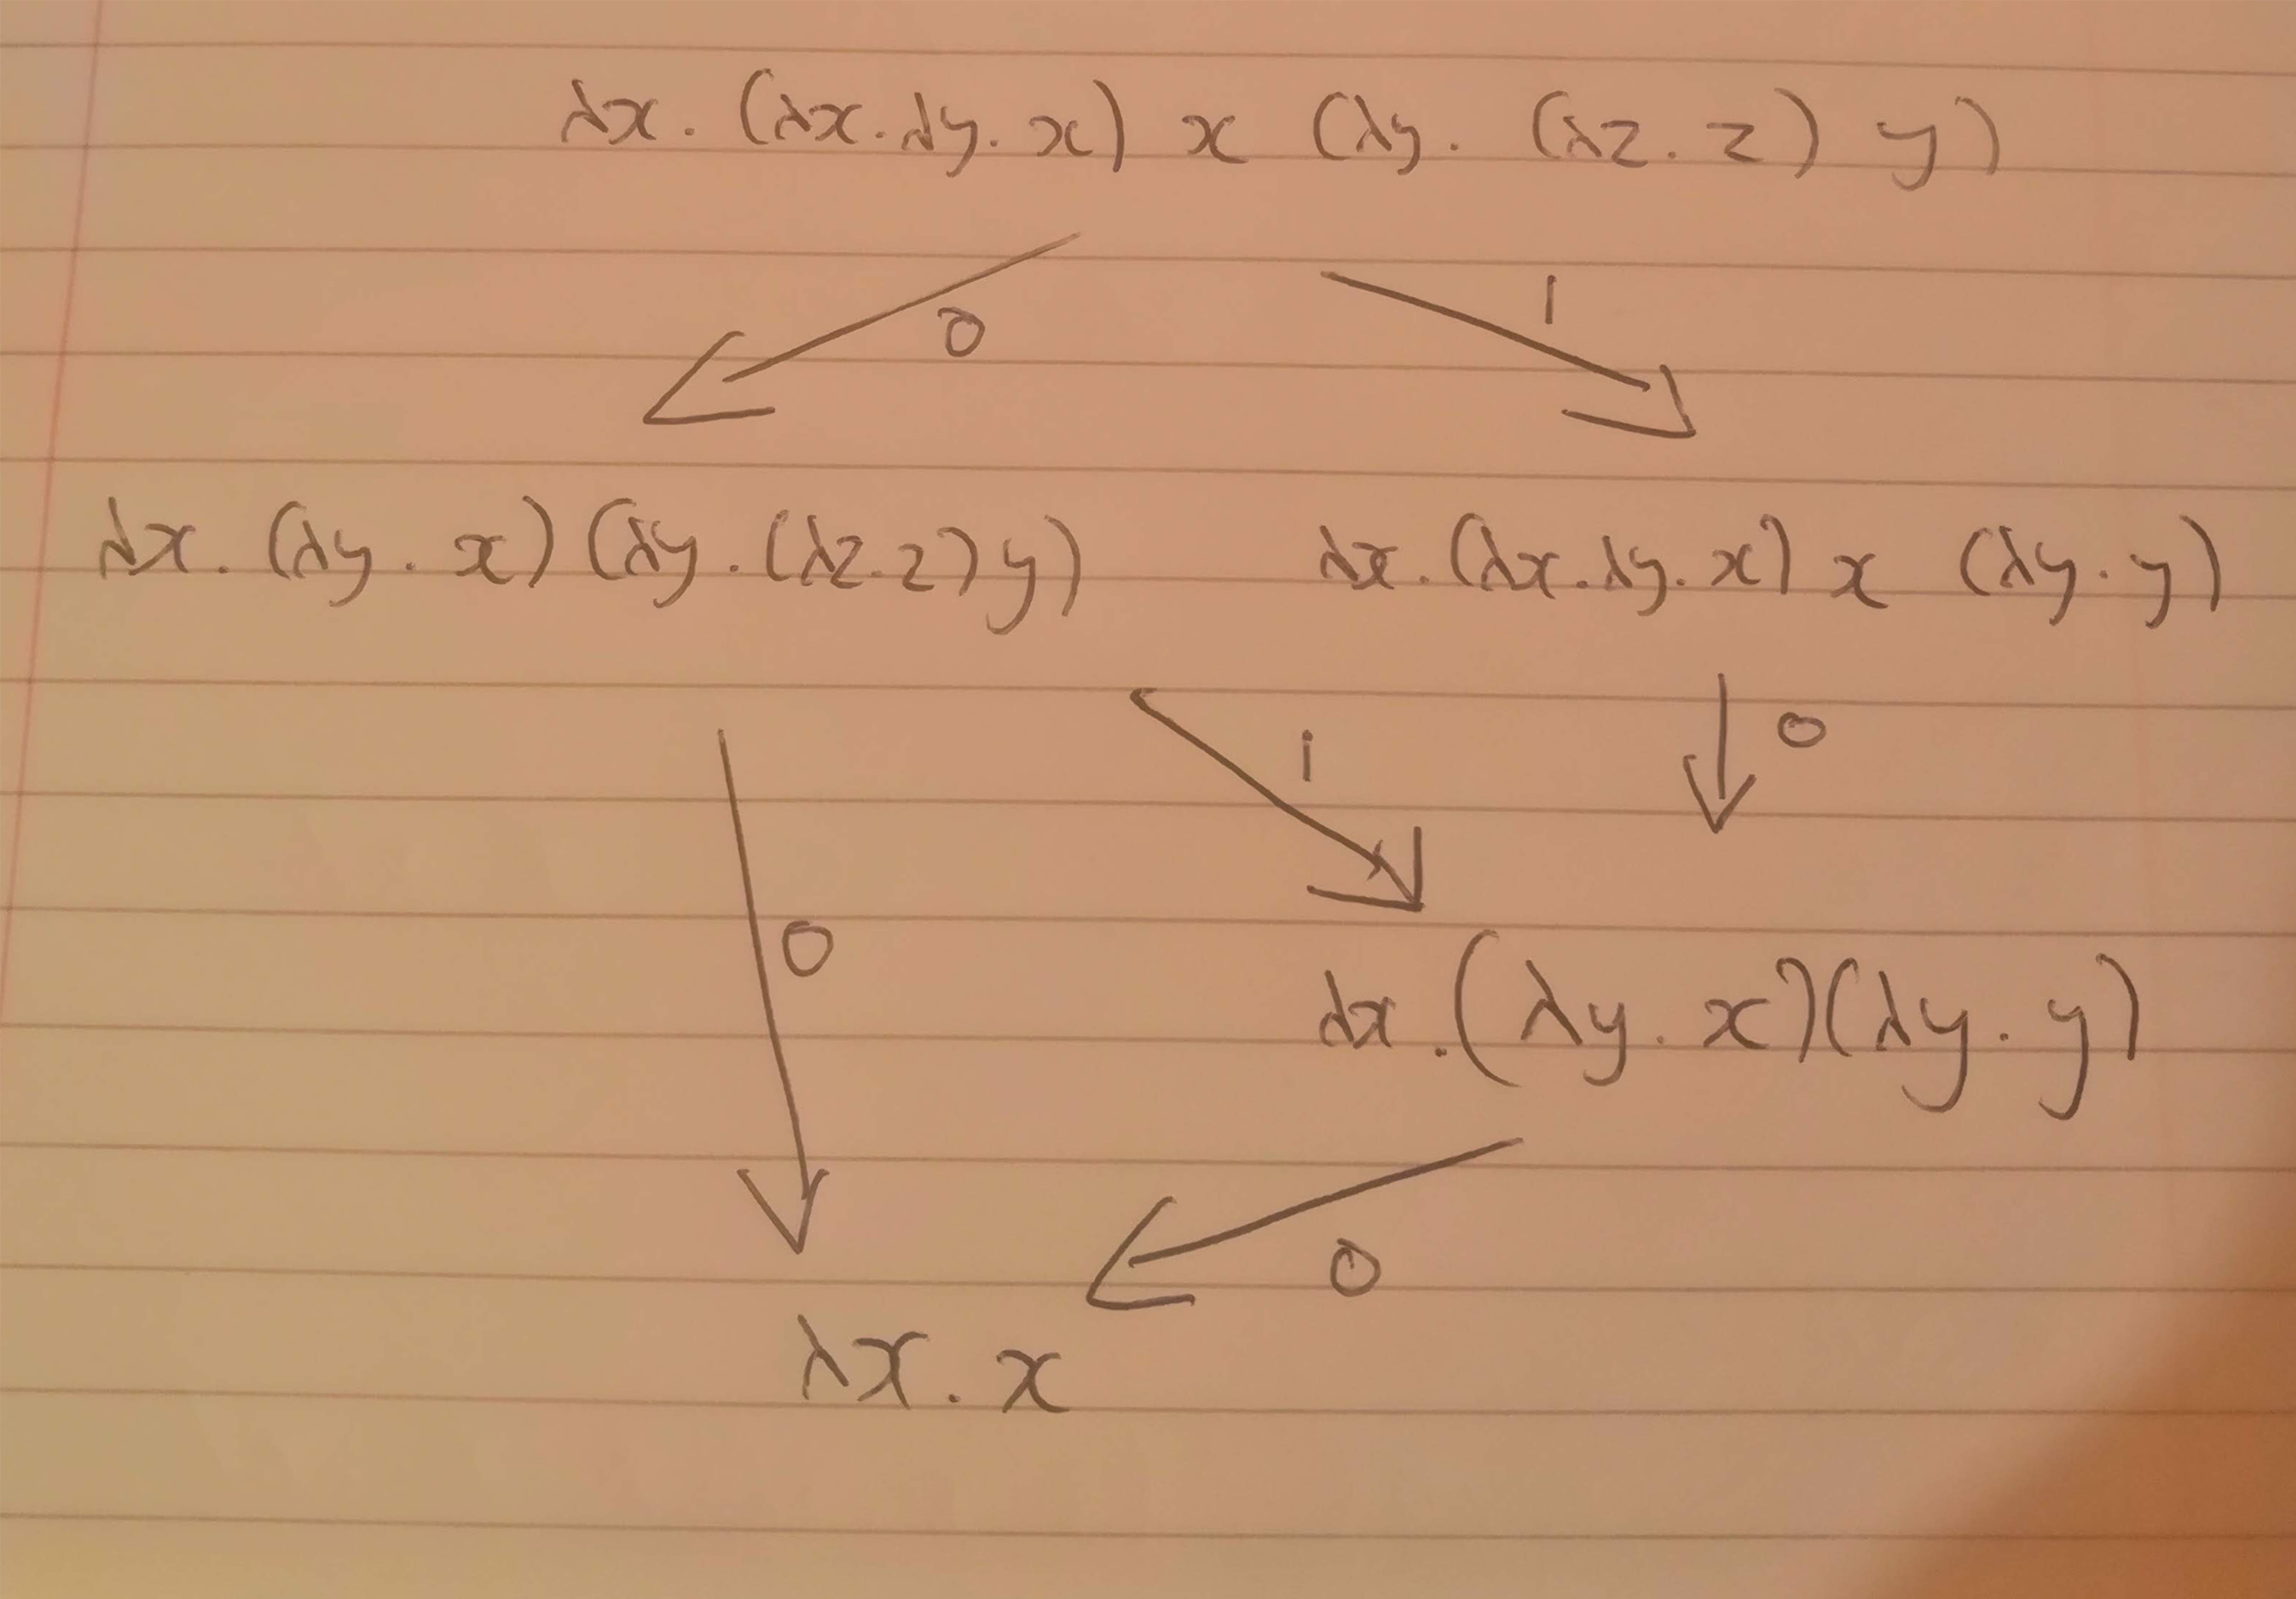 λx. (λx.λy.x) x (λy. (λz.z) y)
0 1
λx. (λy.x)(λy.(λz.z)y) λx.(λx.λy.x) x (λy.y)
1 0
0
λx.(λy.x)(λy.y)
0
λx.x